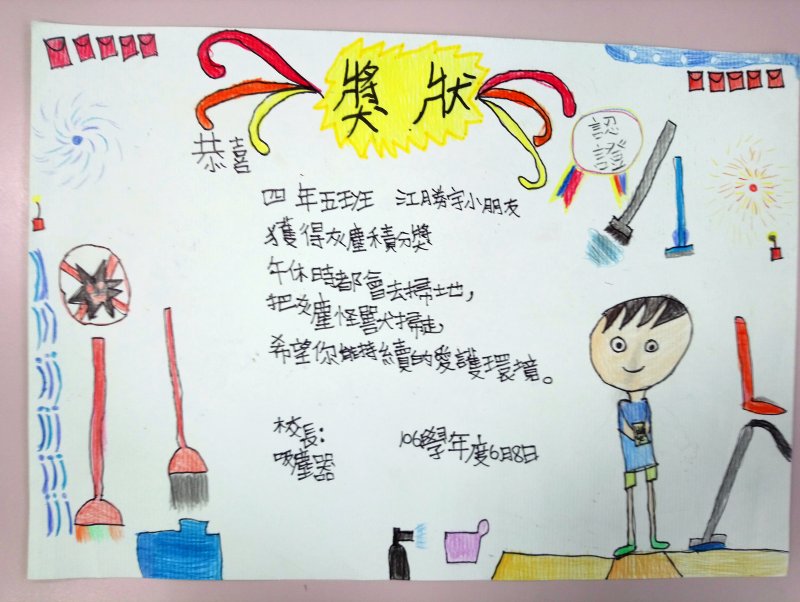 獎狀
恭喜
認
證
四年五班 江勝宇小朋友
獲得灰塵積分獎
午休時都會去掃地,
把灰塵怪獸掃走,
希望你能持續的愛護環境。
校長:
吸塵器
106學年度6月8日